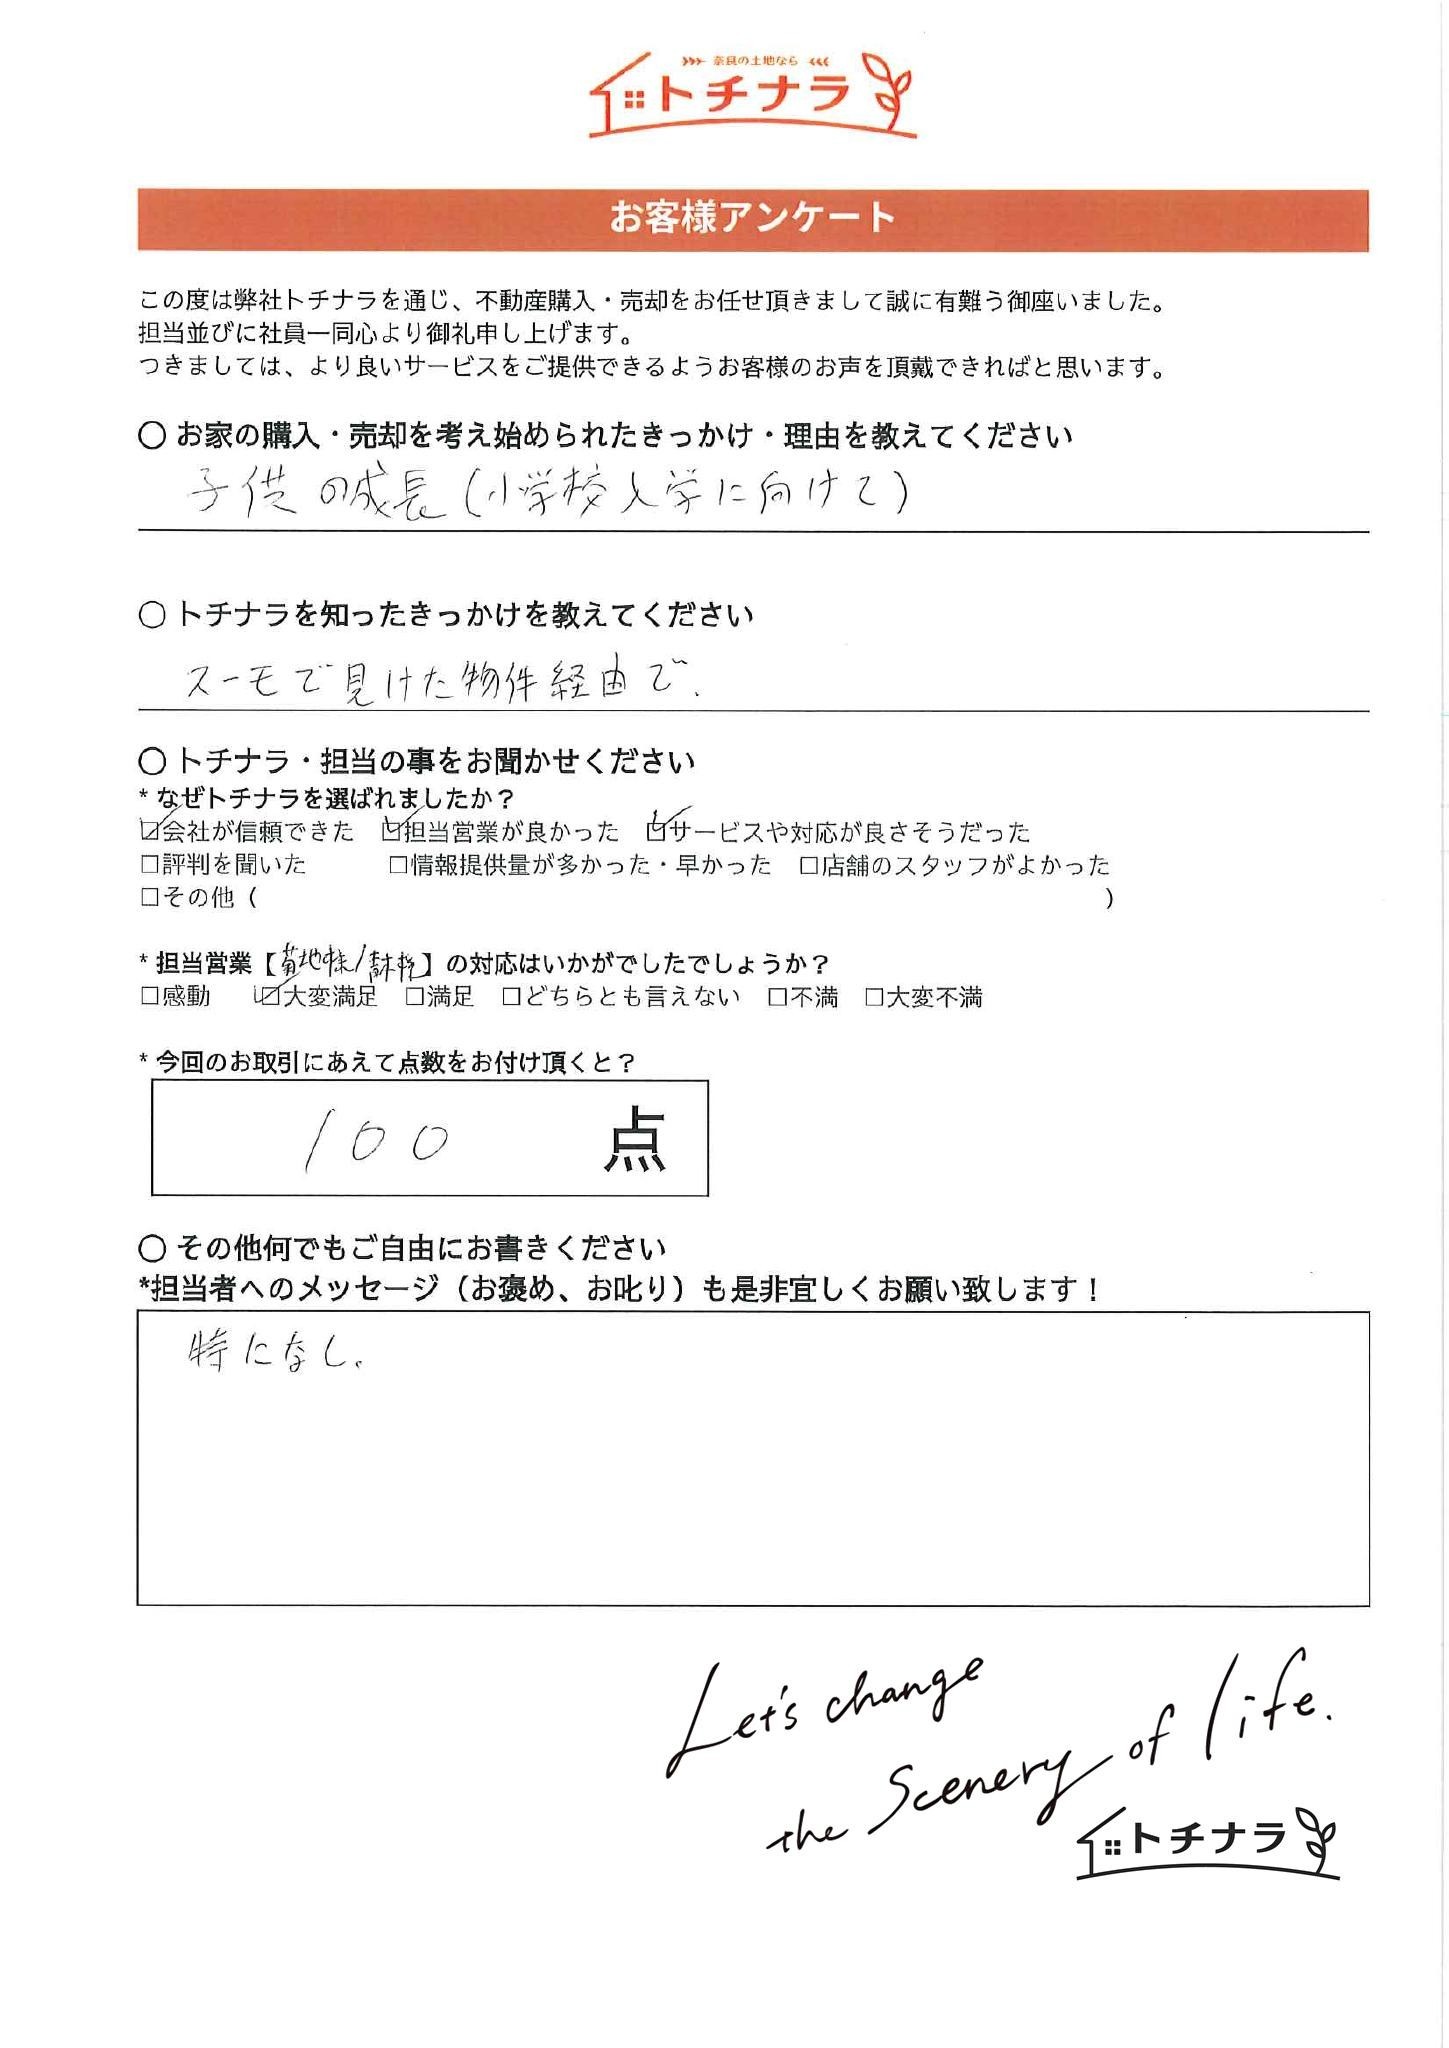 奈良の土地なら
トチナラ
お客様アンケート
この度は弊社トチナラを通じ、不動産購入・売却をお任せ頂きまして誠に有難う御座いました。
担当並びに社員一同心より御礼申し上げます。
つきましては、より良いサービスをご提供できるようお客様のお声を頂戴できればと思います。
○ お家の購入・売却を考え始められたきっかけ・理由を教えてください
子供の成長(小学校入学に向けて)
○ トチナラを知ったきっかけを教えてください
スーモで見けた物件経由で.
○ トチナラ・担当の事をお聞かせください
* なぜトチナラを選ばれましたか？
☑会社が信頼できた ☑担当営業が良かった ☑サービスや対応が良さそうだった
□評判を聞いた □情報提供量が多かった・早かった □店舗のスタッフがよかった
□その他（ ）
* 担当営業【菊地様/青木様】の対応はいかがでしたでしょうか？
□感動 ☑大変満足 □満足 □どちらとも言えない □不満 □大変不満
* 今回のお取引にあえて点数をお付け頂くと？
100 点
○ その他何でもご自由にお書きください
*担当者へのメッセージ（お褒め、お叱り）も是非宜しくお願い致します！
特になし。
Let's change
the Scenery of life.
トチナラ